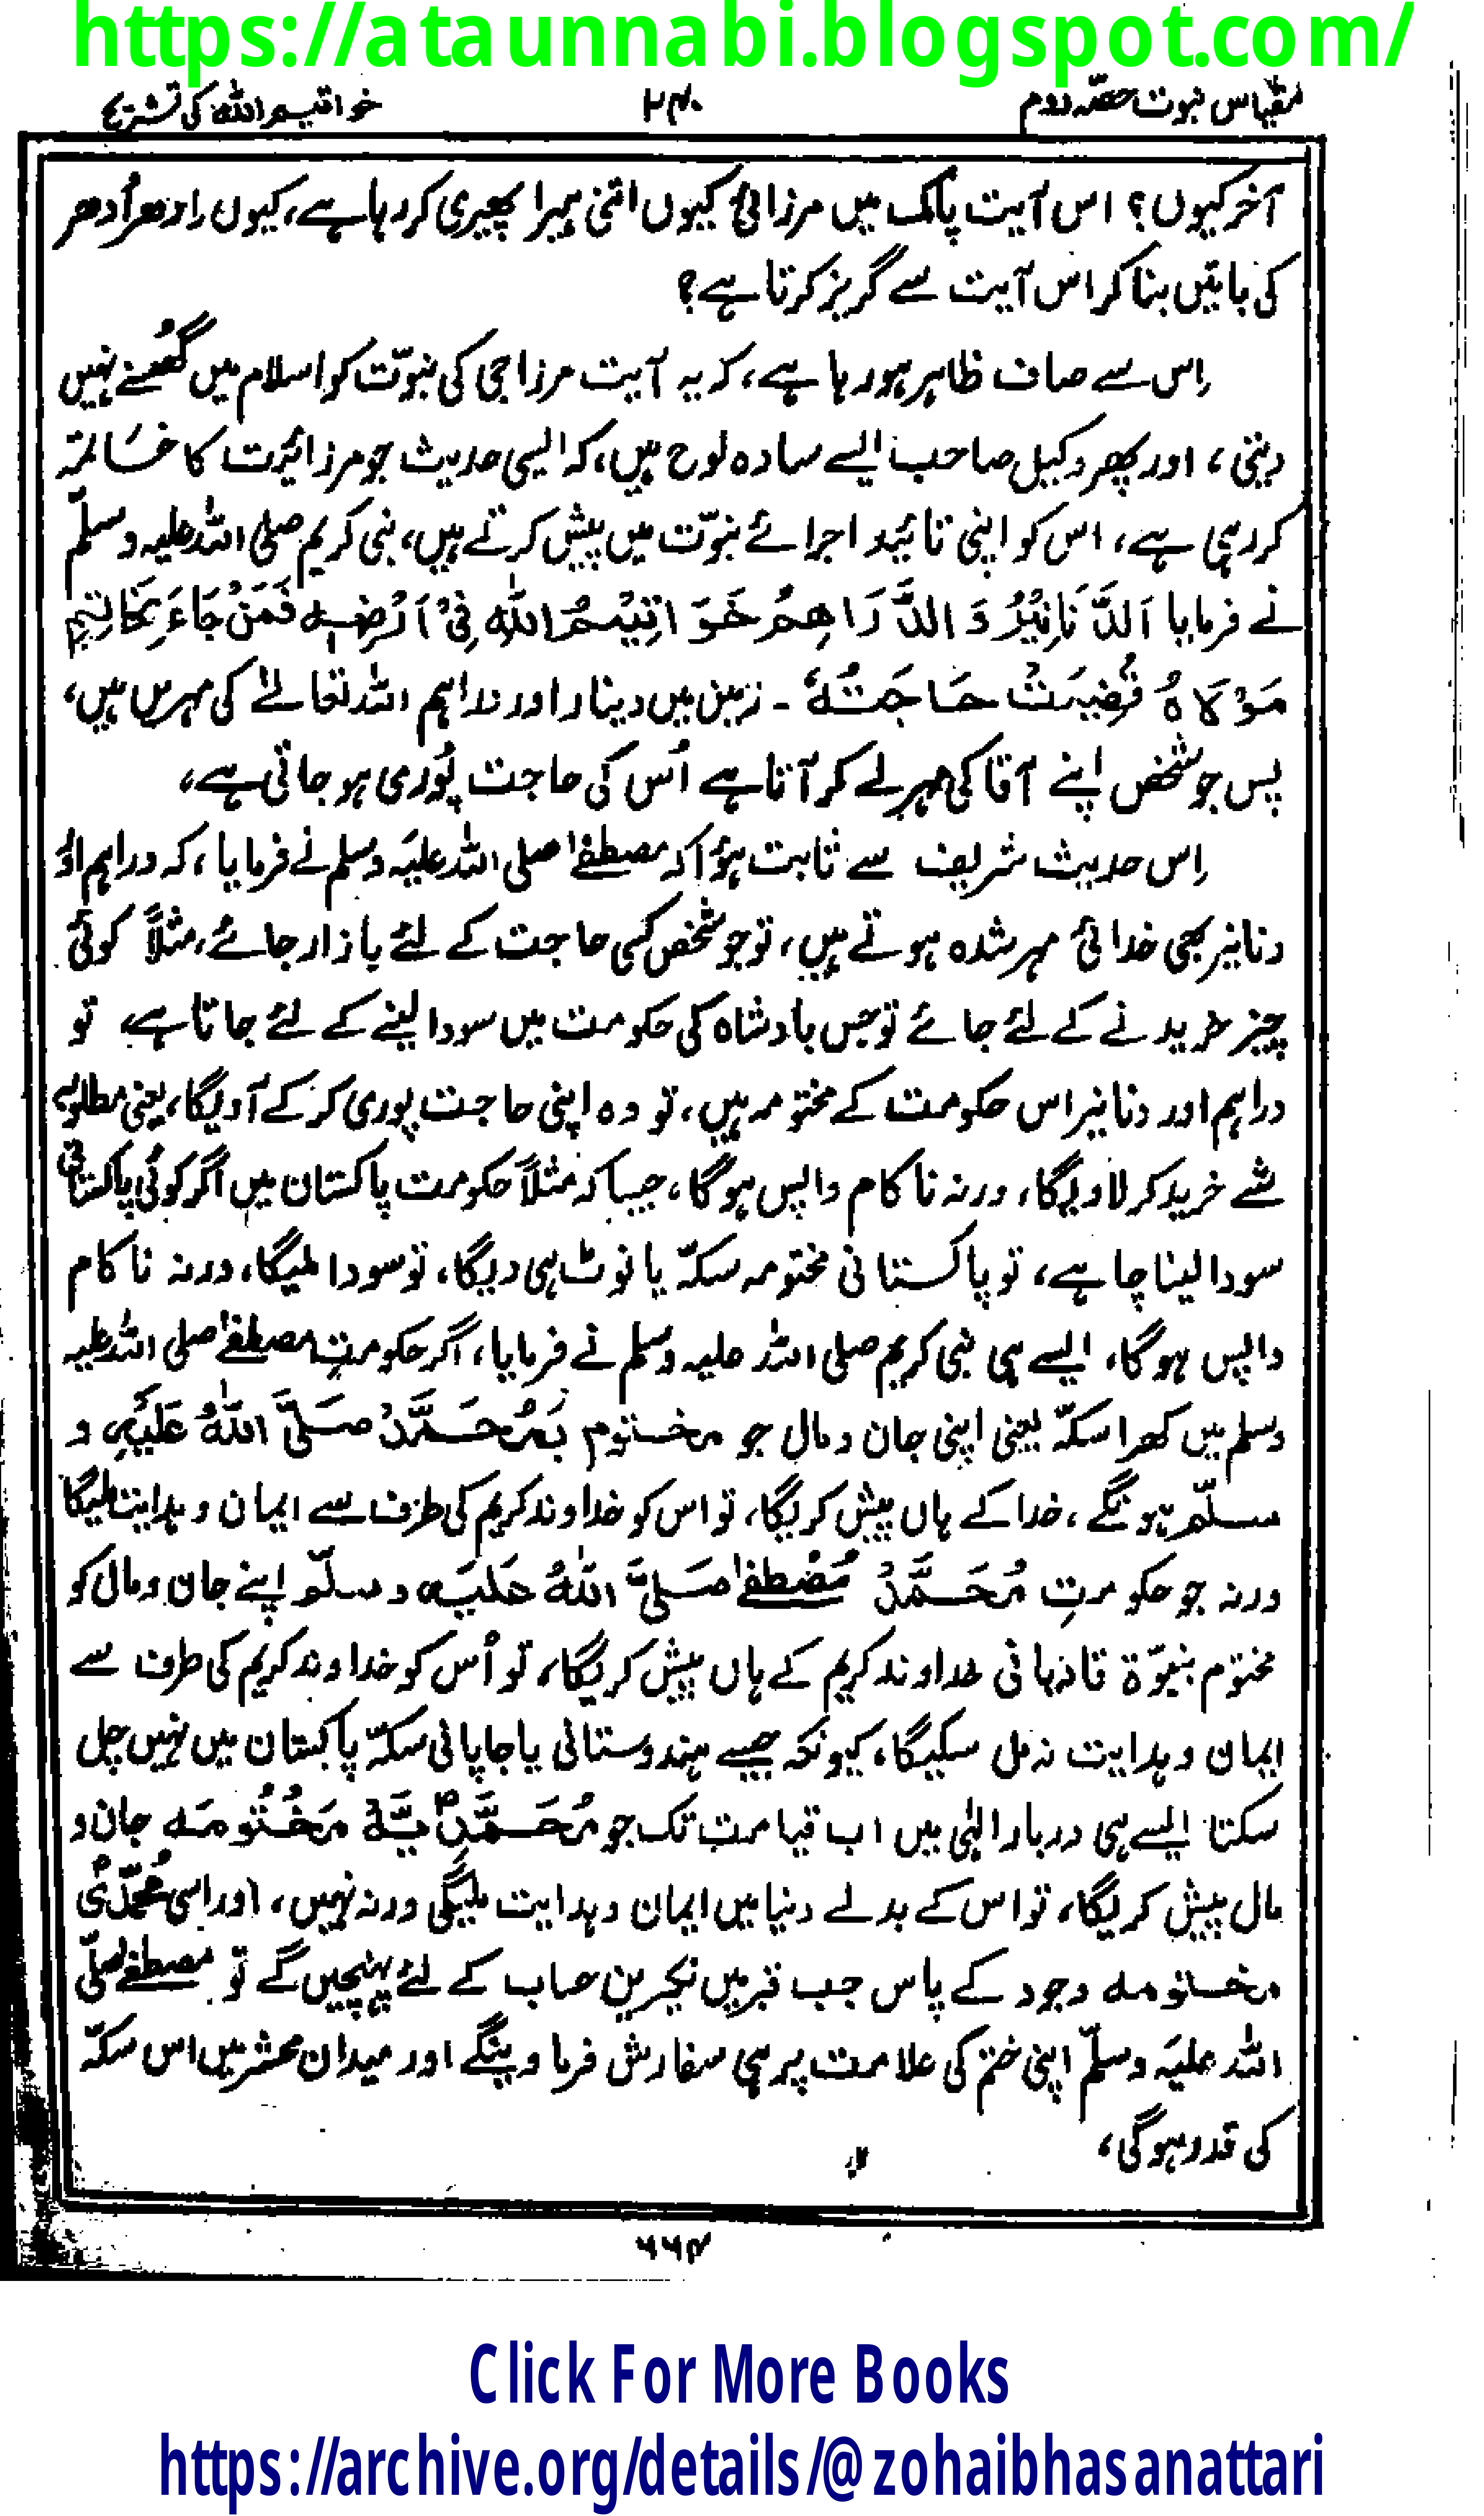 https://ataunnabi.blogspot.com/
مقیاس نبوت حصّہ دوم
۲۴۰
خواتیم اللہ کی تشریح
آخر کیوں؟ اس آیت پاک میں مرزائی کیوں اتنی ہیرا پھیری کر رہا ہے، کیوں اِدھر اُدھر
کی باتیں بنا کر اس آیت سے گریز کرتا ہے؟
اِس سے صاف ظاہر ہو رہا ہے، کہ یہ آیت مرزا جی کی نبوّت کو اسلام میں گھُسنے نہیں
دیتی، اور پھر وکیل صاحب ایسے سادہ لوح ہیں، کہ ایسی حدیث جو مرزائیت کا خَاتمہ
کر رہی ہے، اس کو اپنی تائید اجرائے نبوّت میں پیش کرتے ہیں، نبی کریم صلی اللہ علیہ وسلم
نے فرمایا اَلدَّنَانِیْرُ وَالدَّرَاهِمُ خَوَاتِیْمُ اللهِ فِیْ اَرْضِهٖ فَمَنْ جَاءَ بِخَاتِمِ
مَوْلَاهُ قُضِیَتْ حَاجَتُهٗ ۔ زمین میں دینار اور دراہم اللہ تعالےٰ کی مہریں ہیں،
پس جو شخص اپنے آقا کی مہر لے کر آتا ہے اُس کی حاجت پُوری ہو جاتی ہے،
اِس حدیث شریف سے ثابت ہؤا کہ مصطفےٰ صلی اللہ علیہ وسلم نے فرمایا، کہ دراہم اور
دنانیر بھی خدائی مہر شدہ ہوتے ہیں، تو جو شخص کسی حاجت کے لئے بازار جائے، مثلاً کوئی
چیز خریدنے کے لئے جائے تو جس بادشاہ کی حکومت میں سودا لینے کے لئے جاتا ہے، تو
دراہم اور دنانیر اس حکومت کے مختومہ ہیں، تو وہ اپنی حاجت پوری کر کے آویگا، یعنی مطلوبہ
شے خرید کر لاویگا، ورنہ ناکام واپس ہوگا، جیسا کہ مثلاً حکومت پاکستان میں اگر کوئی پاکستانی
سودا لینا چاہے، تو پاکستانی مختومہ سکہّ یا نوٹ ہی دیگا، تو سودا ملیگا، ورنہ ناکام
واپس ہوگا، ایسے ہی نبی کریم صلی اللہ علیہ وسلم نے فرمایا، اگر حکومتِ مصطفےٰ صلی اللہ علیہ
وسلم میں کھرا سکہّ یعنی اپنی جان و مال جو مختوم بَمُحَمَّدْ صَلَّی اللهُ عَلَیْهِ و
سلّم ہونگے، خدا کے ہاں پیش کریگا، تو اس کو خداوند کریم کی طرف سے ایمان و ہدایت ملیگا
ورنہ جو حکومتِ مُحَمَّدْ مُصْطفےٰ صَلَّی اللهُ عَلَیَه وسلّم اپنے جان و مال کو
مختوم بنبوّۃ قادیانی خداوند کریم کے ہاں پیش کریگا، تو اُس کو خداوند کریم کی طرف سے
ایمان و ہدایت نہ مل سکیگا، کیونکہ جیسے ہندوستانی یا جاپانی سکہّ پاکستان میں نہیں چل
سکتا ایسے ہی دربار الٰہی میں اب قیامت تک جو مُحَمَّدِیَّهْ مَخْتُومَه جان و
مال پیش کریگا، تو اس کے بدلے دنیا میں ایمان و ہدایت ملیگی ورنہ نہیں، اور اسی مُحَمَّدی
مختومہ وجود کے پاس جب قبر میں نکیرین حساب کے لئے پہنچیں گے تو مصطفےٰ صلّی
اللہ علیَہ وسلّم اپنی ختم کی علامت پر ہی سفارش فرماویں گے اور میدان محشر میں اس سکہّ
کی قدر ہوگی،
۶۶۴
Click For More Books
https://archive.org/details/@zohaibhasanattari